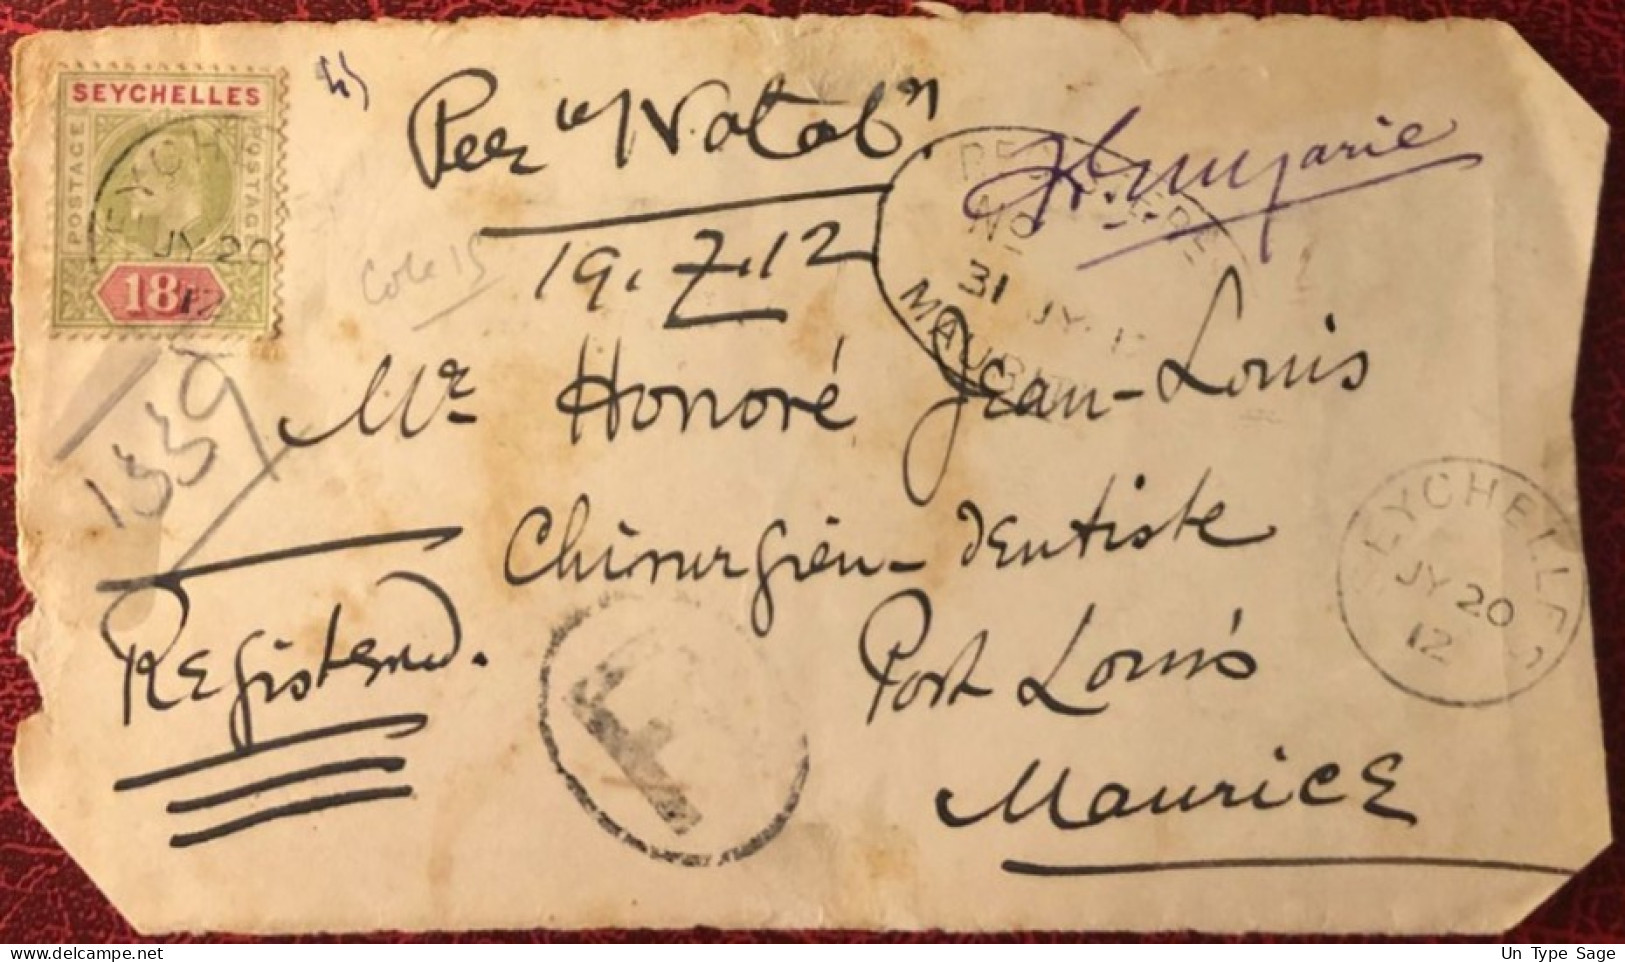 SEYCHELLES
POSTAGE
POSTAGE
18
SEYCH
JY 20
12
Per "Natal"
19.7.12
Cote 15
REGISTERED
No
31 JY. 12
MAURIT
1339
Mr Honoré Jean-Louis
Chirurgien-Dentiste
Port Louis
Maurice
Registered.
T
SEYCHELLES
JY 20
12
Un Type Sage